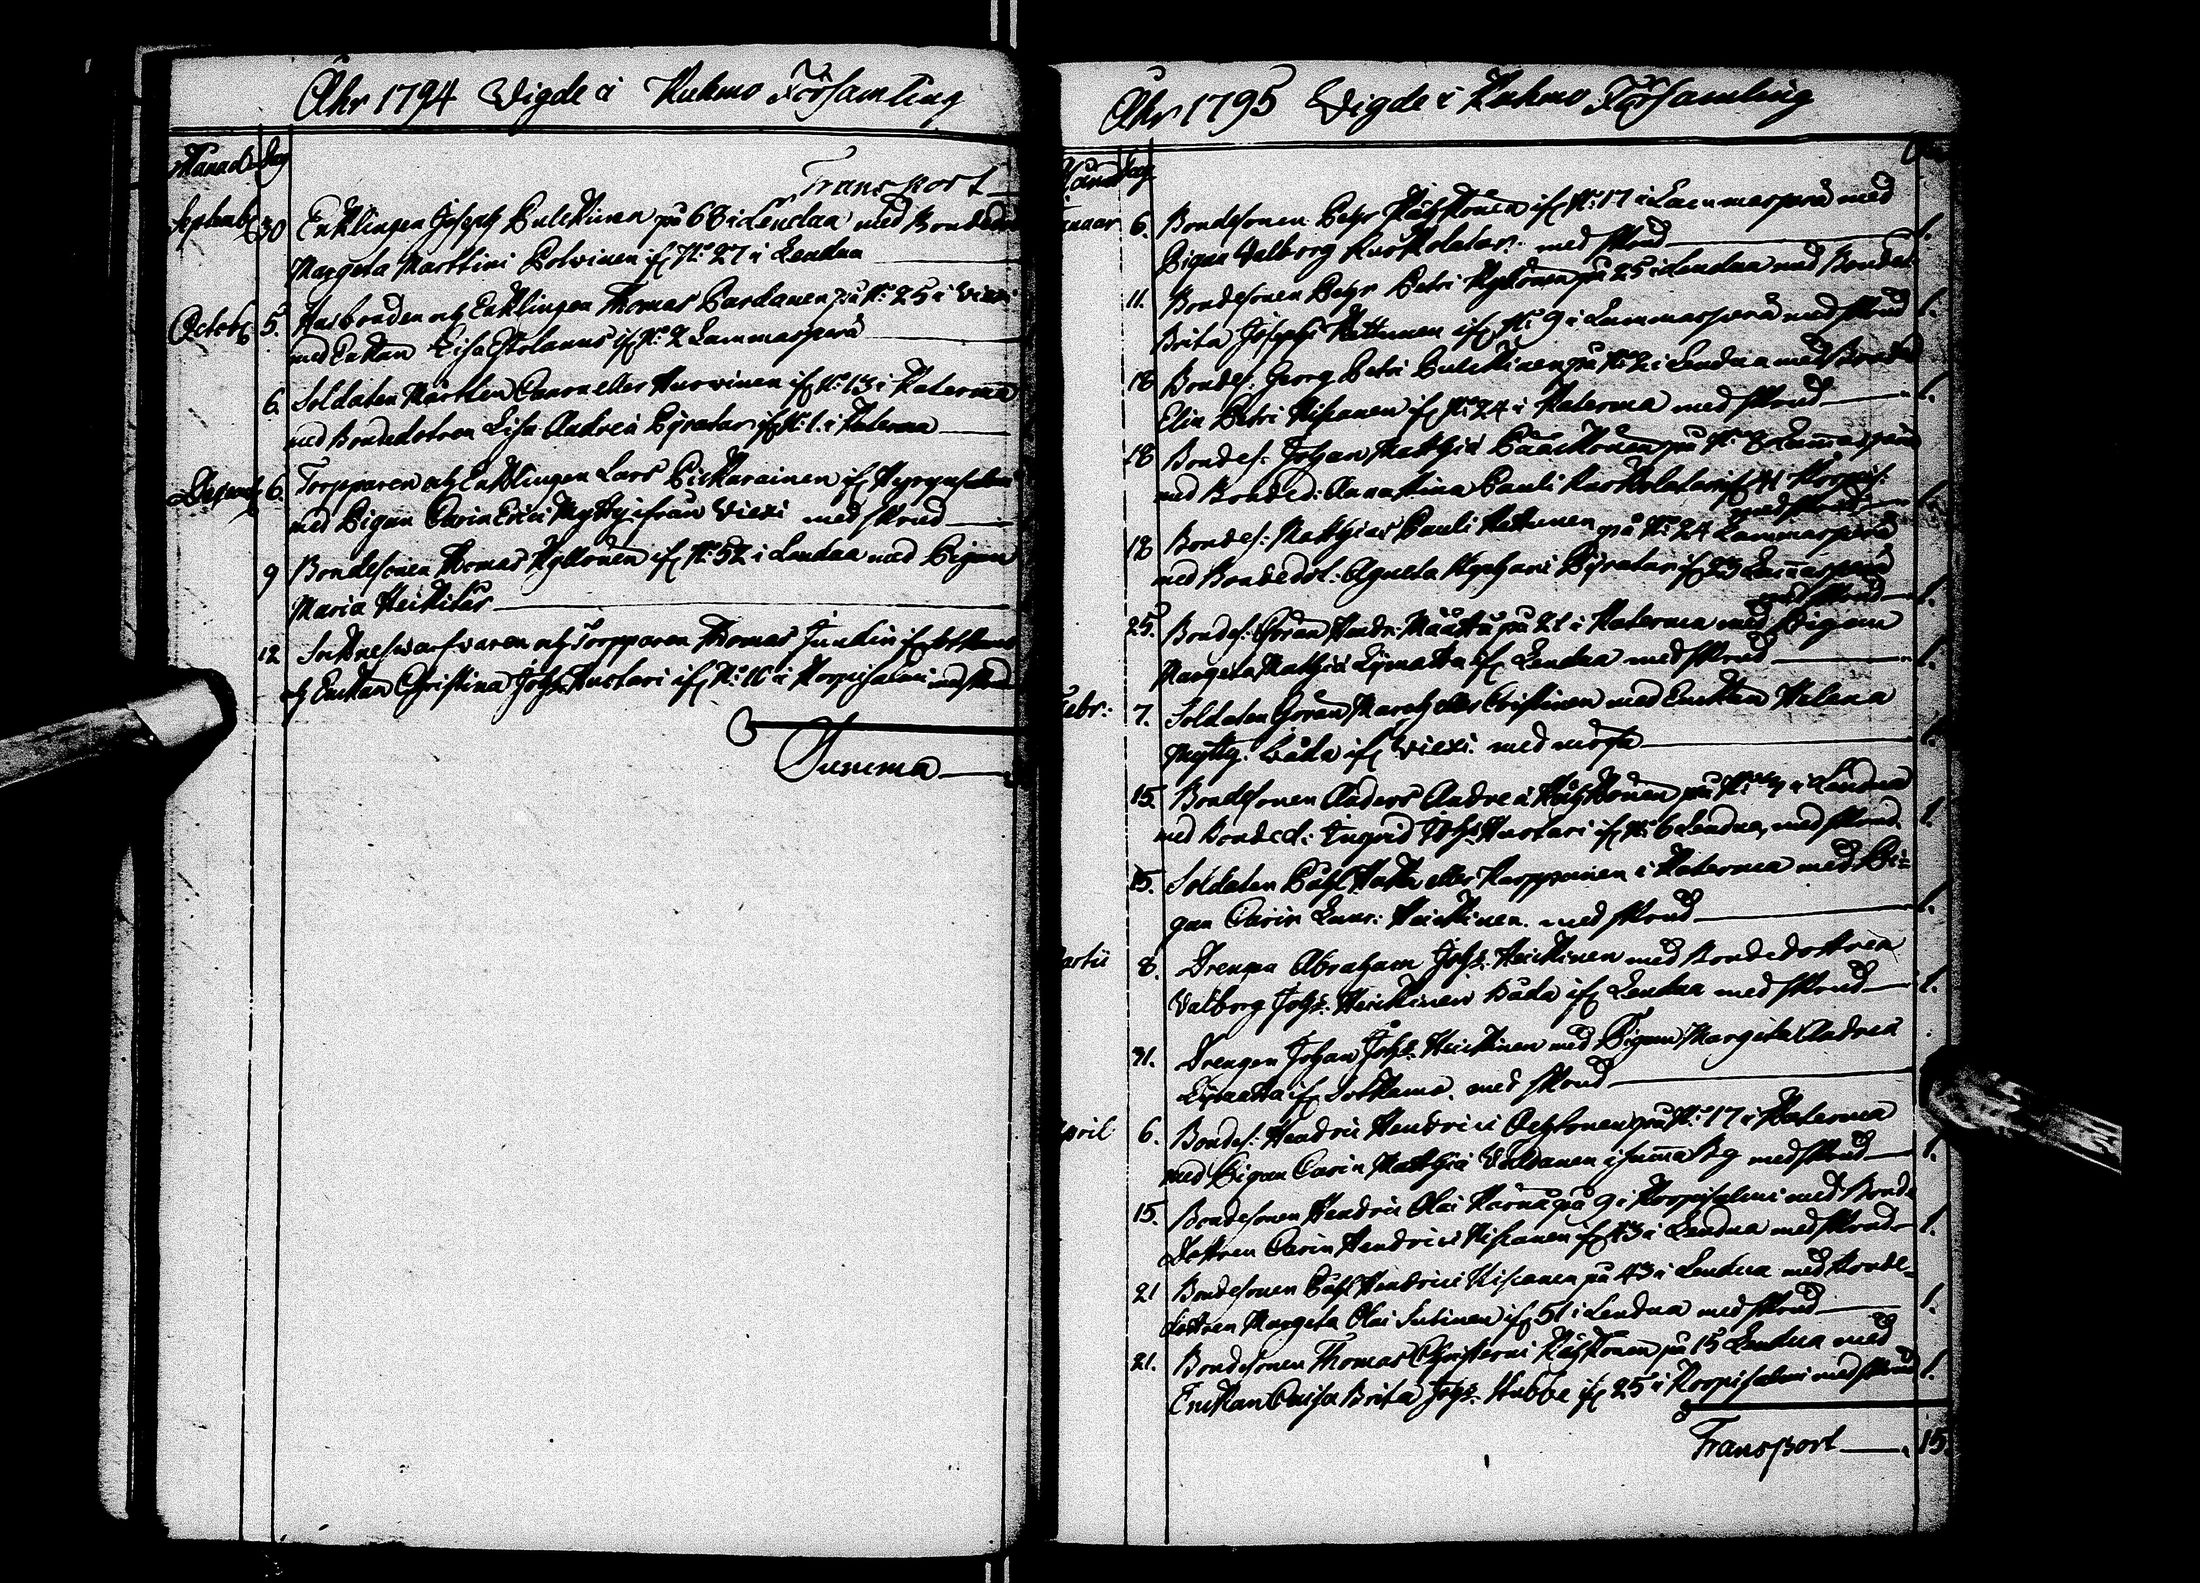 Åhr 1794 Wigde i Kuhmo Församling
Månad Dag
Transport
Septemb: 30 Enklingen Joseph Pulckinen på 68 i Lendua med Bondedot:
Margeta Marttini Potvinen if: N:o 27 i Lendua
Octob: 5. Husbonden och Enklingen Thomas Pardanen på N:o 25 i Viexi
med Enkan Lisa Tolanus if: N:o 2 Lammasperä
6. Soldaten Mårthen eller Hurvinen if: N:o 13 i Katerma
med Bondedotren Lisa Andreæ Pyratar if: N:o 1. i Katerma
Decemb: 6. Torpparen och Enklingen Lars Pickarainen if: Hyrynsalmi
med Pigan Carin Erici Myhty ifrån Viexi med skrud
9 Bondesonen Thomas Kyllönen if: N:o 52 i Lendua med Pigan
Maria Heickitär
12 Socknesvarfvaren och Torpparen Thomas Junkin if: Sotkamo
och Enckan Christina Joh: Hustari if: N:o 16 i Korpisalmi med skrud
Summa
Åhr 1795 Wigde i Kuhmo Församling
Månad Dag
Januar 6. Bondesonen Pehr Kähkönen if: N:o 17 i Lammasperä med
Pigan Valborg Ruskolatar: med skrud 1.
11. Bondesonen Pehr Petri Kyllönen på 25 i Lendua med Bondet:
Brita Josephi Kettunen if: N:o 9 i Lammasperä med skrud 1.
18 Bondes: Georg Petri Pulckinen på N:o 2 i Lendua med Bonded
Elin Petri Kiskanen if: N:o 24 i Katerma med skrud 1.
18 Bondes: Johan Mathiæ Pääckönen på N:o 8 Lammasperä
med Bonded: Annastina Pauli Ruskolatar if: 41 Korpis:
med skrud 1.
18 Bondes: Mathias Pauli Kettunen på N:o 24 Lammasperä
med Bondedot: Agneta Pyratar if: 23 Lammasperä
med skrud 1.
25. Bondes: Göran Hendr: Määttä på 21 i Katerma med Pigan
Margeta Mathiæ Lymatta if: Lendua med skrud 1.
Febr: 7. Soldaten Göran Marah eller Cristinen med Enckan Helena
Myhty. båda if: Viexi. med mössa 1.
15. Bondesonen Anders Andreæ Kähkönen på N:o i Lendua
med Bonded: Ingrid Joh: Hustari if: N:o 6 Lendua, med skrud. 1.
15. Soldaten Påhl Hatt eller Karppainen i Katerma med Pi=
gan Carin Laur: Heickinen. med skrud 1.
Martii 8. Drengen Abraham Joh: Heickinen med Bondedottren
Valborg Joh: Heickinen båda if: Lendua med skrud 1.
31. Drengen Johan Joh: Heickinen med Pigan Margeta Andreæ
Lymatta if: Sotkamo. med skrud
April 6. Bondes: Hendric Hendrici Achtonen på N:o 17 i Katerma
med Pigan Carin Mathiæ Valdanen i samma By med skrud 1.
15. Bondesonen Hendric Olai Kärnä på 9 i Korpisalmi med Bonde
dottren Carin Hendrici Kiskanen if: 43 i Lendua med skrud 1.
21 Bondesonen Påhl Hendrici Kiskanen på 43 i Lendua med Bonde=
dottren Margeta Olai Sutinen if: 51 i Lendua med skrud 1.
21. Bondesonen Thomas Christerni Kähkönen på 15 Lendua med
Enckan Caisa Brita Joh: Hubbe if: 25 i Korpisalmi med skrud 1.
Transport 15.